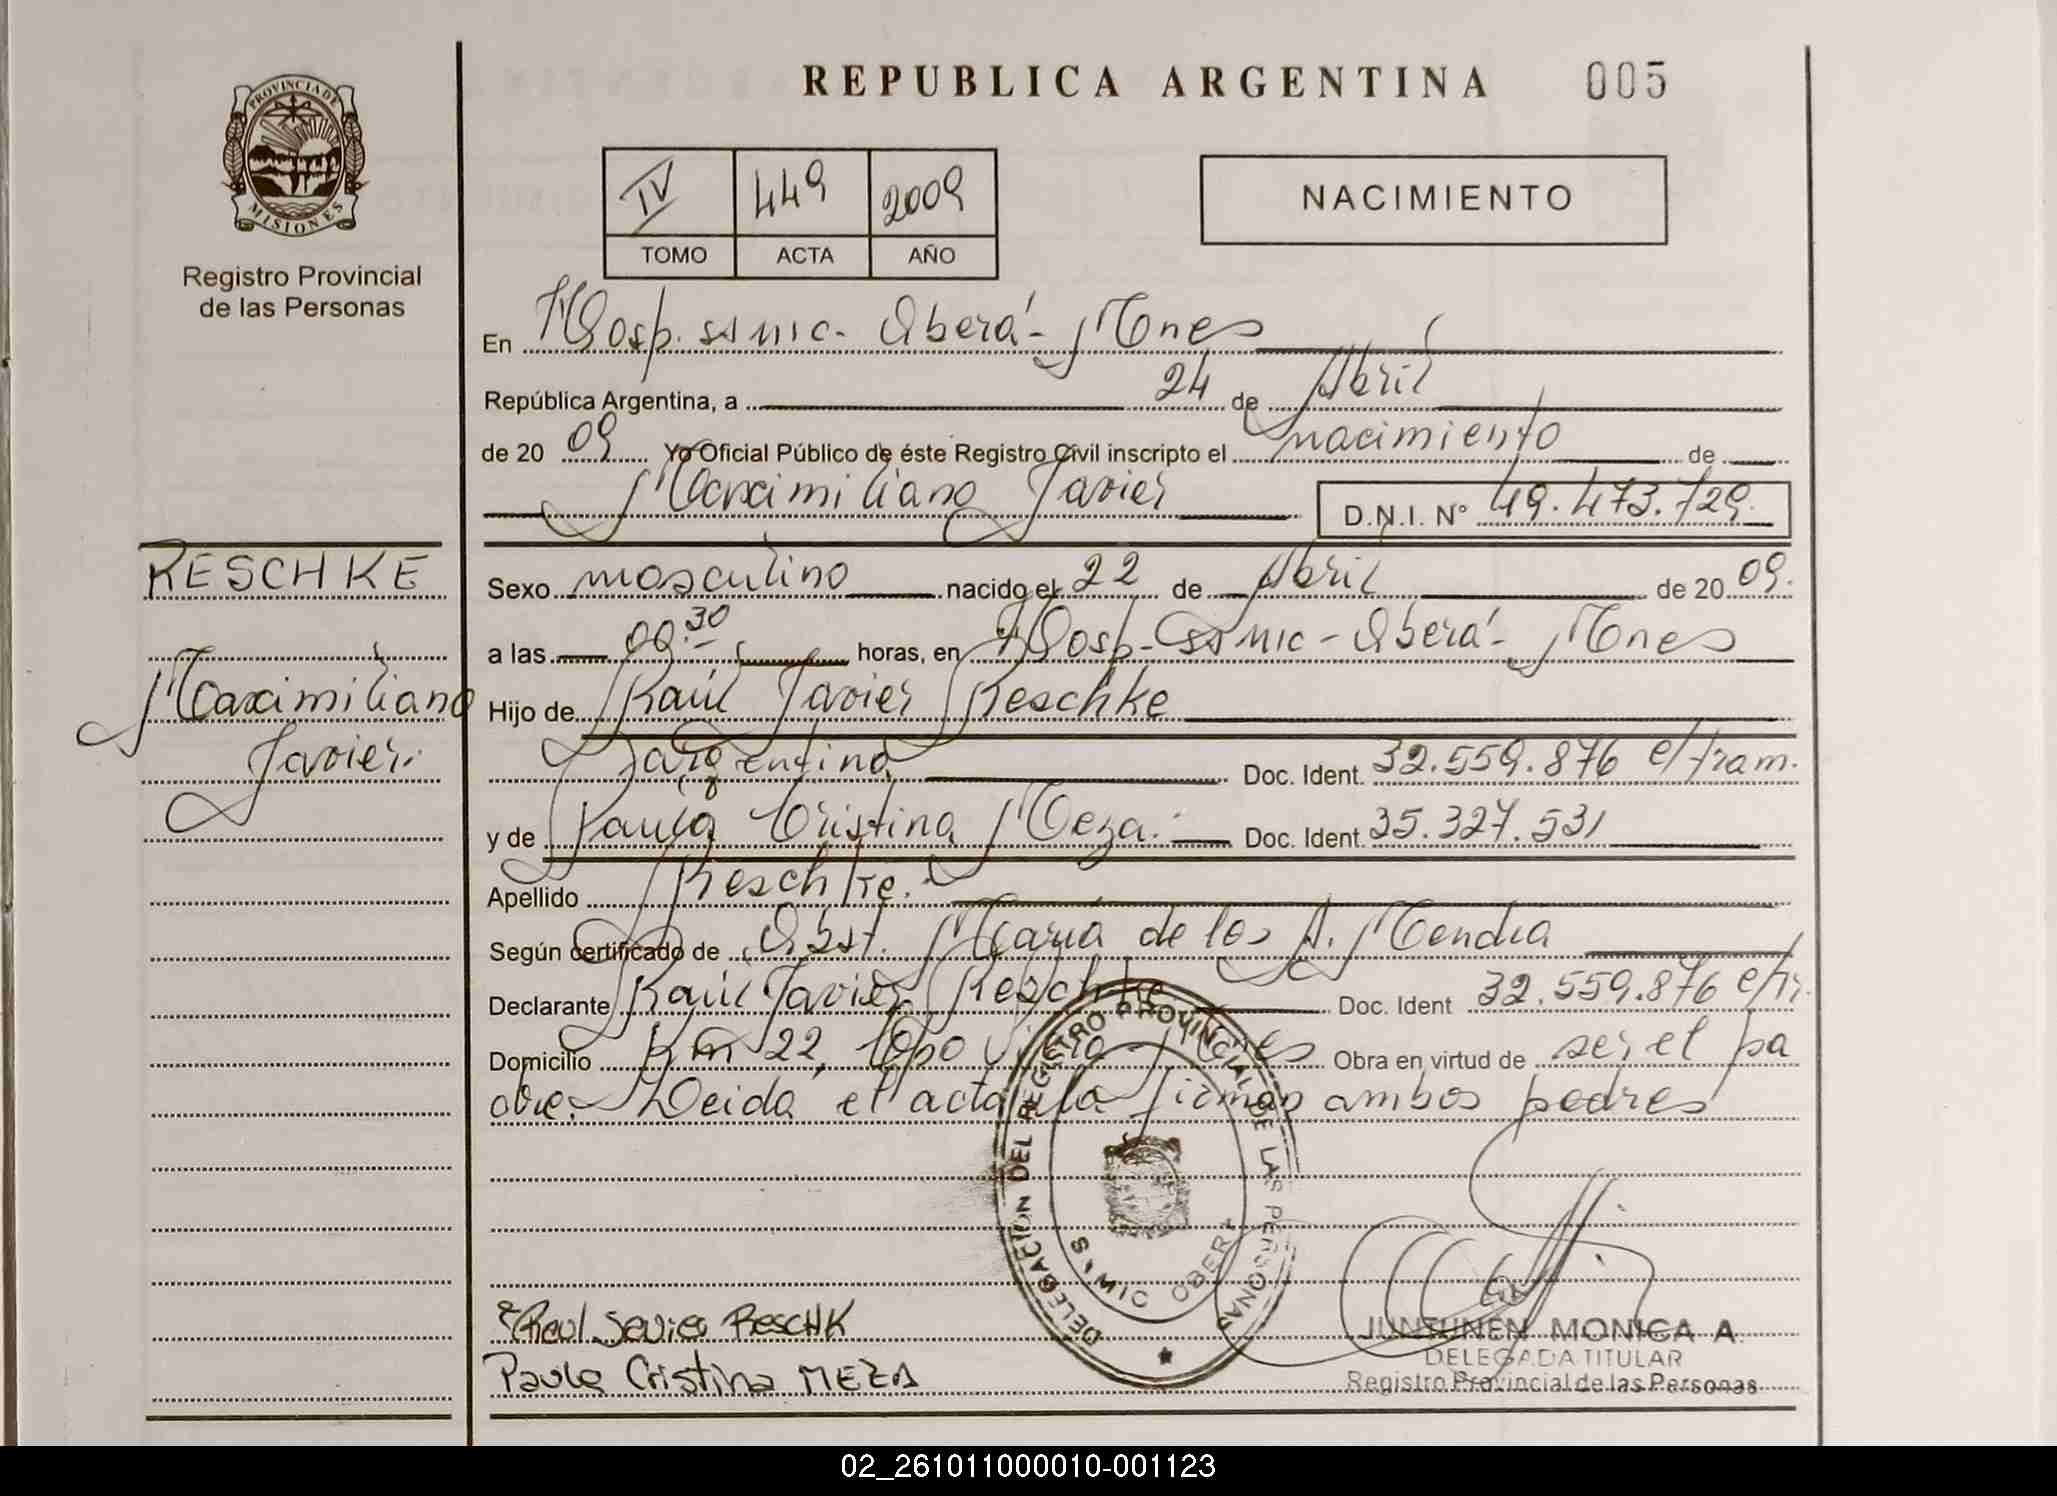 REPUBLICA ARGENTINA 005
PROVINCIA DE
MISIONES
Registro Provincial
de las Personas
IV 449 2009
TOMO ACTA AÑO
NACIMIENTO
En Hosp. ss mic- Oberá- Mnes
República Argentina, a 24 de Abril
de 20 09 Yo Oficial Público de éste Registro Civil inscripto el nacimiento de
Maximiliano Javier D.N.I. Nº 49.473.729.
RESCHKE
Maximiliano
Javier.
Sexo masculino nacido el 22 de Abril de 20 09.
a las 00.30 horas, en Hosp- ss mic - Oberá- Mnes
Hijo de Raúl Javier Reschke
argentino Doc. Ident. 32.559.876 e/tram.
y de Paula Cristina Meza. Doc. Ident. 35.327.531
Apellido Reschke.
Según certificado de Obst. María de los A. Mendia
Declarante Raúl Javier Reschke Doc. Ident 32.559.876 e/tr.
Domicilio Km 22, Cpo Viera Mnes Obra en virtud de ser el pa
dre. Leida el acta la firman ambos padres
DELEGACION DEL REGISTRO PROVINCIAL DE LAS PERSONAS
OBERA
Raul Javier RescHK
Paula Cristina MEZA
JUNTUNEN MONICA A.
DELEGADA TITULAR
Registro Provincial de las Personas
02_261011000010-001123